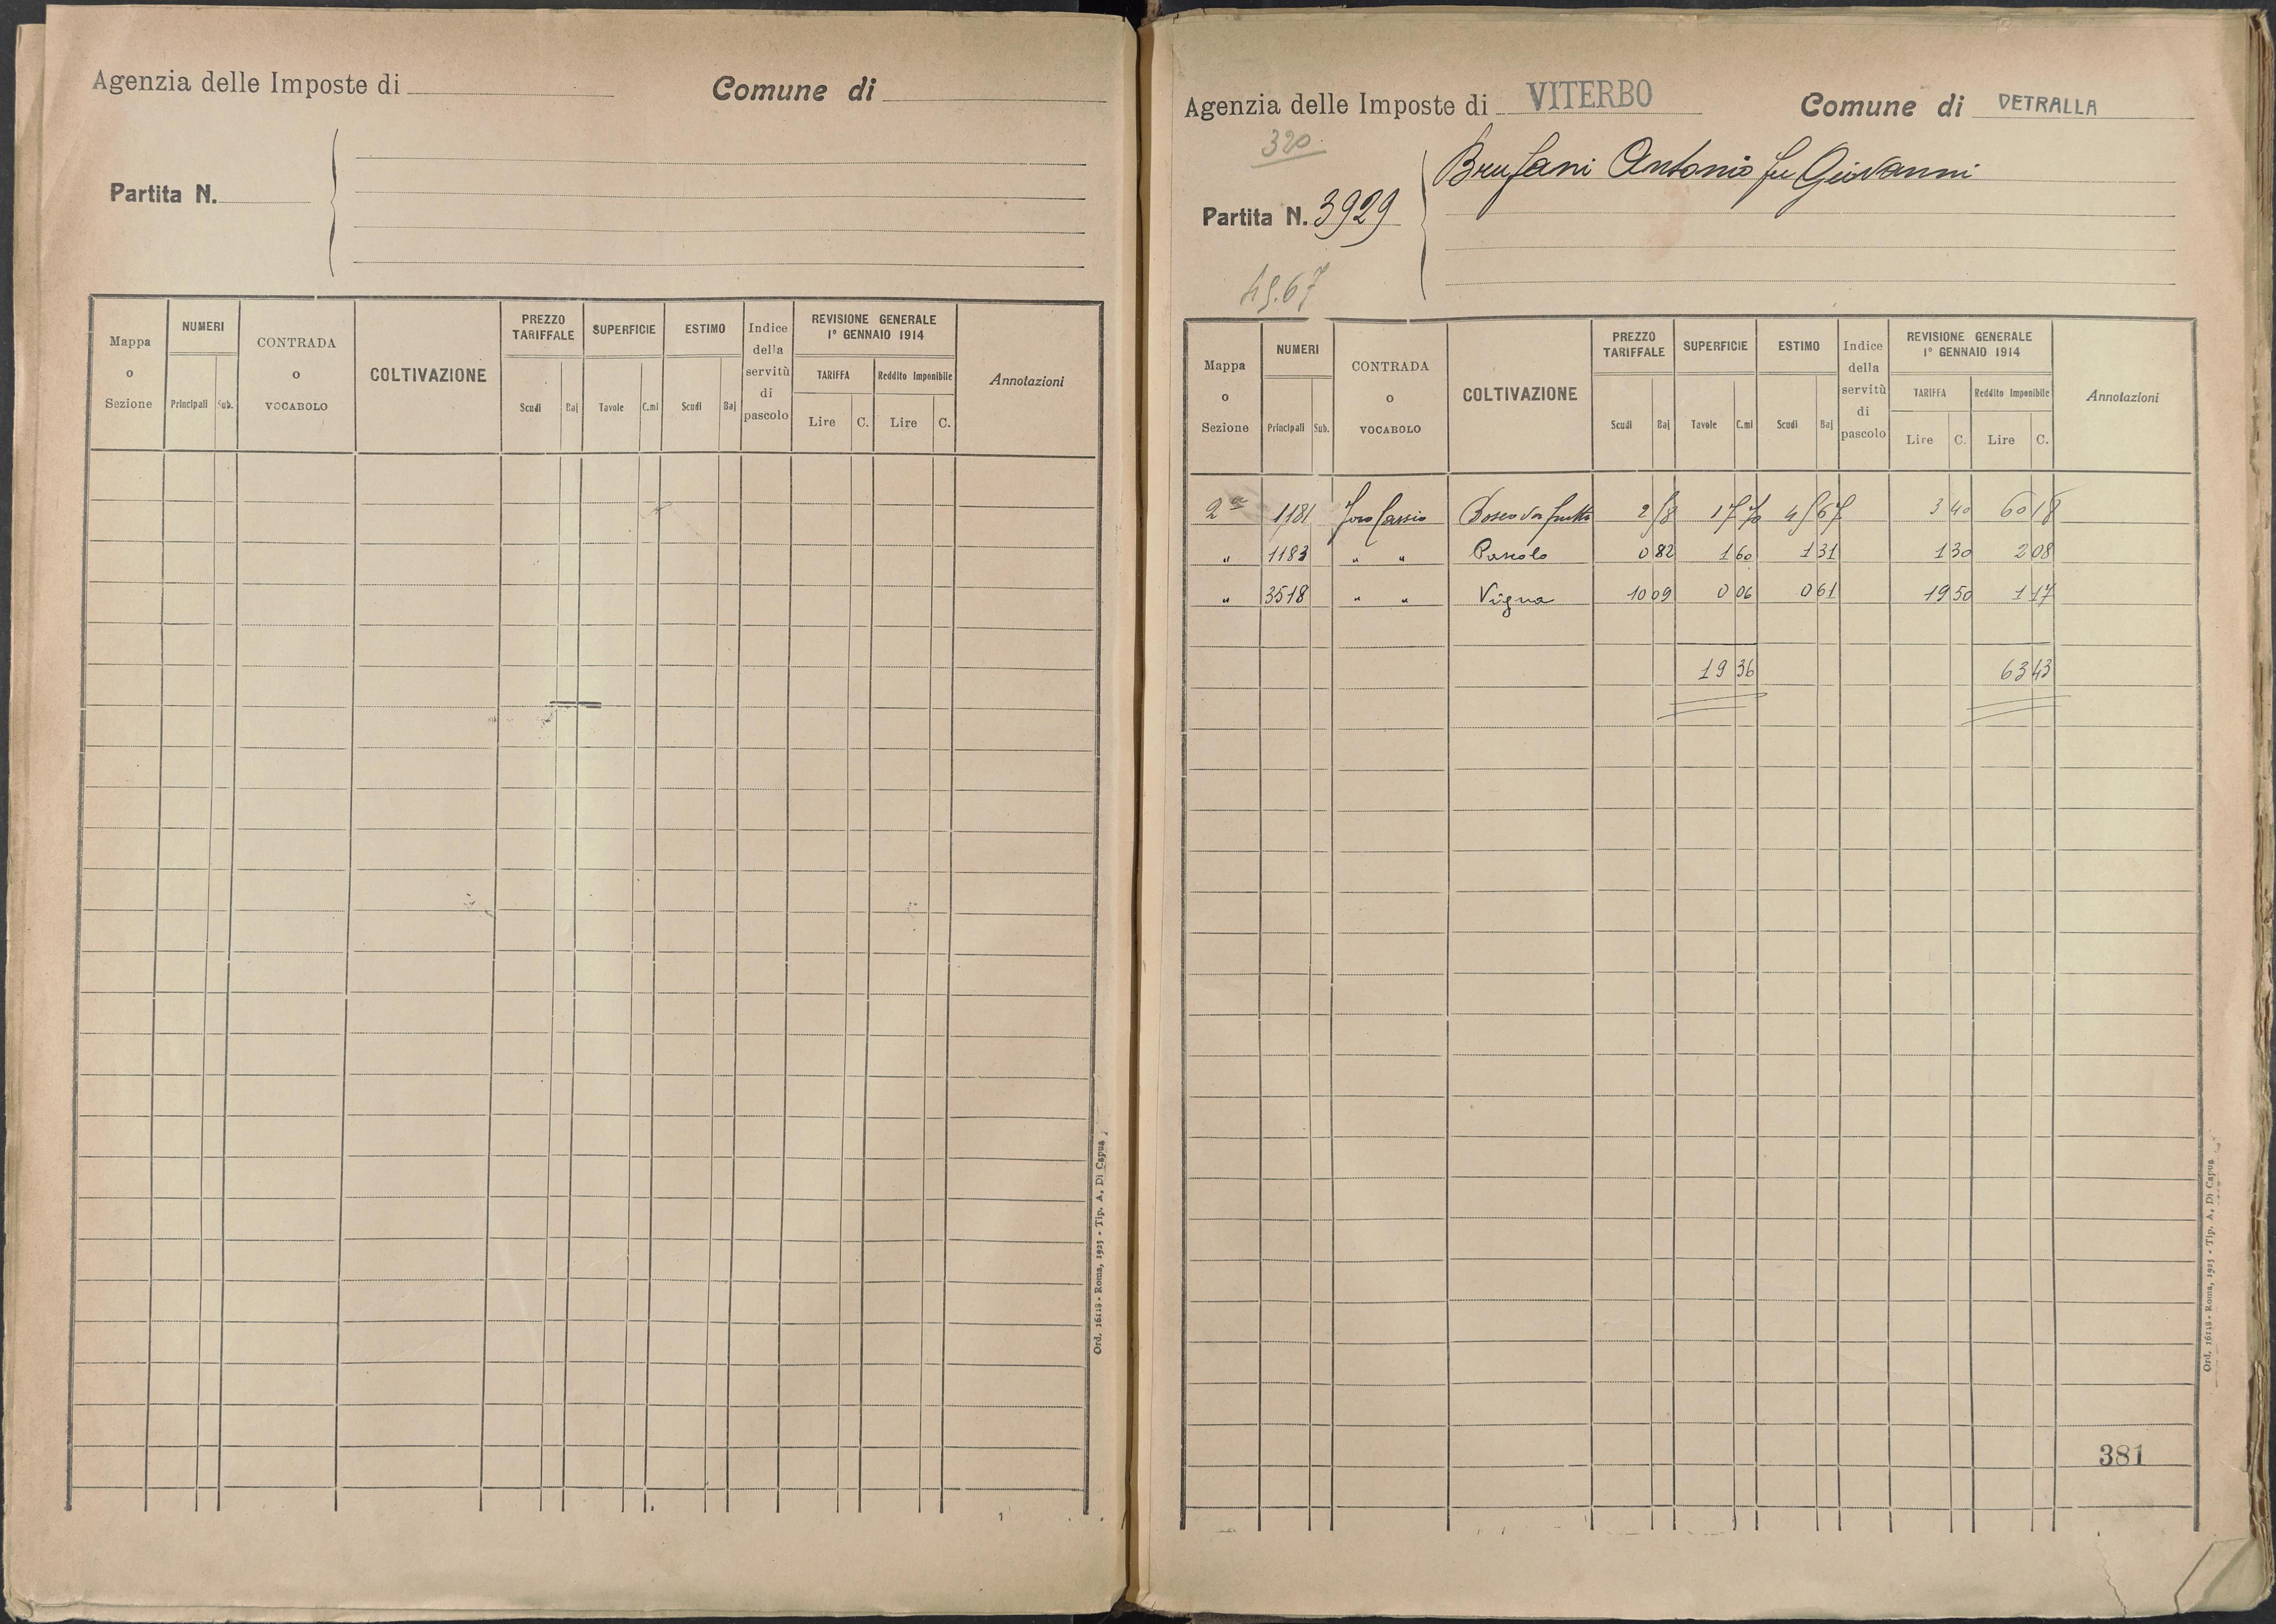 Agenzia delle Imposte di
Comune di
Partita N.
Mappa o Sezione
NUMERI
Principali Sub.
CONTRADA o VOCABOLO
COLTIVAZIONE
PREZZO TARIFFALE
Scudi Baj
SUPERFICIE
Tavole C.mi
ESTIMO
Scudi Baj
Indice della servitù di pascolo
REVISIONE GENERALE
1º GENNAIO 1914
TARIFFA
Lire C.
Reddito Imponibile
Lire C.
Annotazioni
Ord. 16118 - Roma, 1925 - Tip. A. Di Capua
Agenzia delle Imposte di VITERBO
Comune di VETRALLA
320
Brufani Antonio fu Giovanni
Partita N. 3929
45.67
Mappa o Sezione
NUMERI
Principali Sub.
CONTRADA o VOCABOLO
COLTIVAZIONE
PREZZO TARIFFALE
Scudi Baj
SUPERFICIE
Tavole C.mi
ESTIMO
Scudi Baj
Indice della servitù di pascolo
REVISIONE GENERALE
1º GENNAIO 1914
TARIFFA
Lire C.
Reddito Imponibile
Lire C.
Annotazioni
2ª 1181 Foro Cassio Bosco da frutto 2 58 17 70 45 67 3 40 60 18
" 1183 " " Pascolo 0 82 1 60 1 31 1 30 2 08
" 3518 " " Vigna 10 09 0 06 0 61 19 50 1 17
19 36 63 43
381
Ord. 16118 - Roma, 1925 - Tip. A. Di Capua